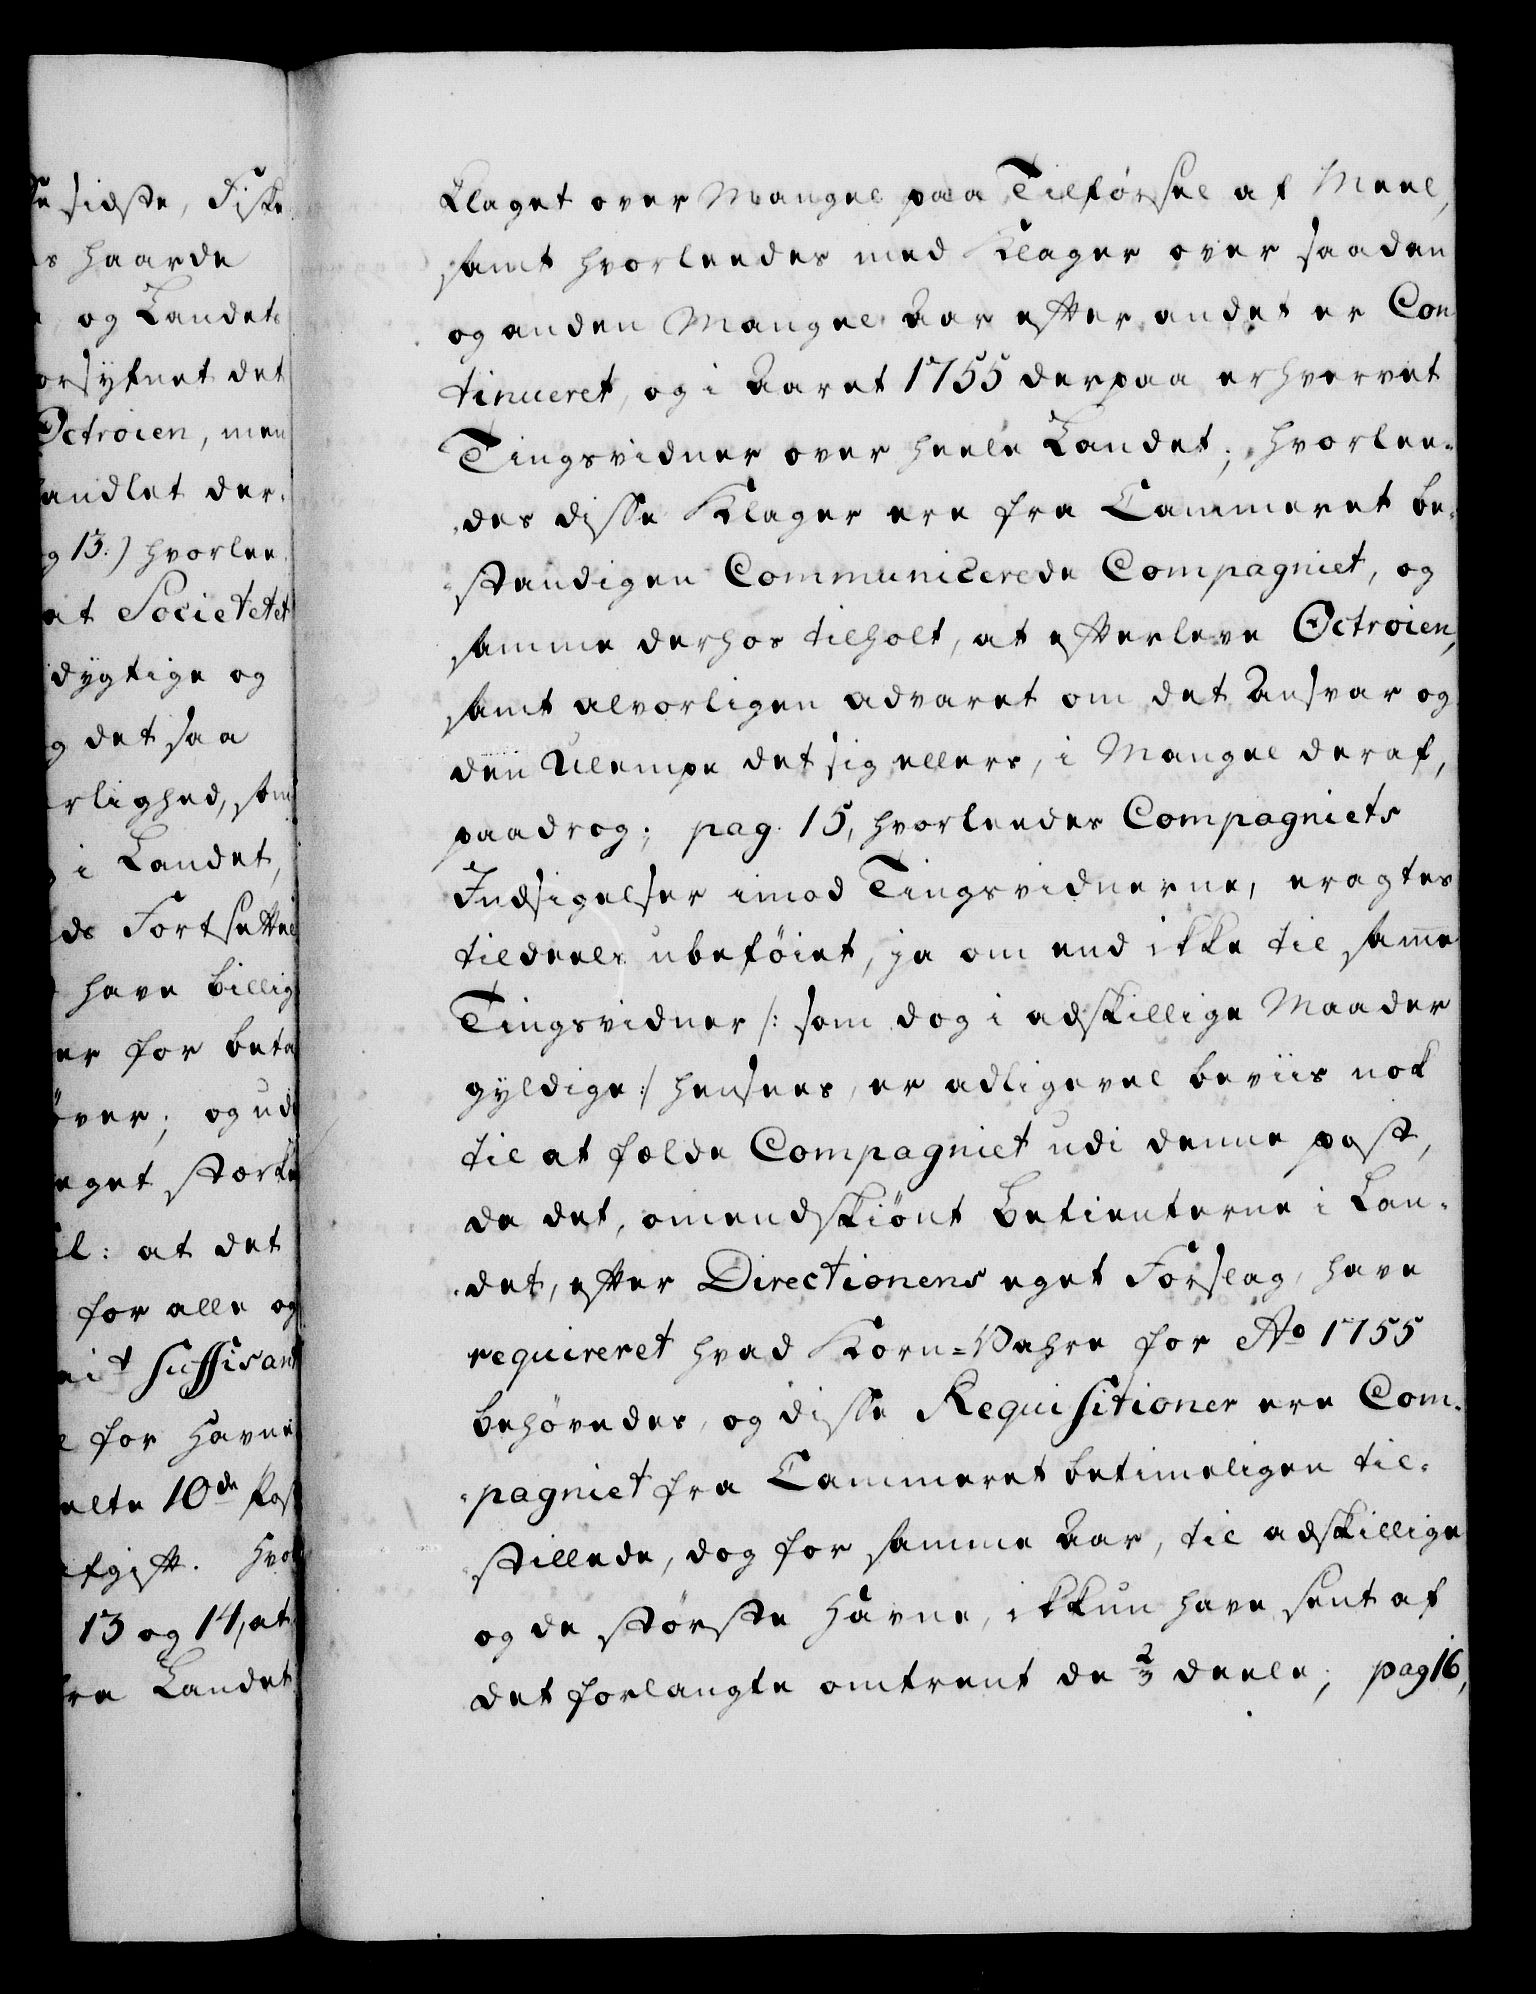 de sidste, Fiske
haarde
og Landets
forsyfnet det
Octroien, men
handlet der-
13.) hvorlee
at Societetet
dygtige og
og det saa
rlighed, som
i Landet,
Fortsettel
have billig
for beta
over; og udi
eget stærke
il: at det
for alle og
suffisant
for Havne
10de Post
Afgift. hvo
13 og 14, at
fra Landet
klaget over Mangel paa Tilførsel af Meel,
samt hvorleedes med Klager over saaden
og anden Mangel Aar efter andet er Con
tinueret, og i Aaret 1755 derpaa erhvervet
Tingsvidner over heele Landet; hvorlee-
des disse Klager ere fra Cammeret be-
standigen Communicerede Compagniet, og
samme derhos tilholt, at efterleve Octroien,
samt alvorligen advaret om det Ansvar og
den Ulempe det sig ellers, i Mangel deraf,
paadrog; pag. 15, hvorleedes Compagniets
Indsigelser imod Tingsvidnerne, eragtes
tildeels ubeføiet, ja om end ikke til same
Tingsvidner /: som dog i adskillige Maader
gyldige :/ hensees, er adligevel beviis nok
til at fælde Compagniet udi denne post,
da det, omendskiønt Betienterne i Lan-
det, efter Directionens eget Forslag, have
requireret hvad Korn=Vahre for Ao 1755
behøvedes, og disse Requisitioner ere Com-
pagniet fra Cammeret betimeligen til-
stillede, dog for samme Aar, til adskillige
og de største Havne, ikkun have sent af
det forlangte omtrent de 2/3 deele; pag 16,